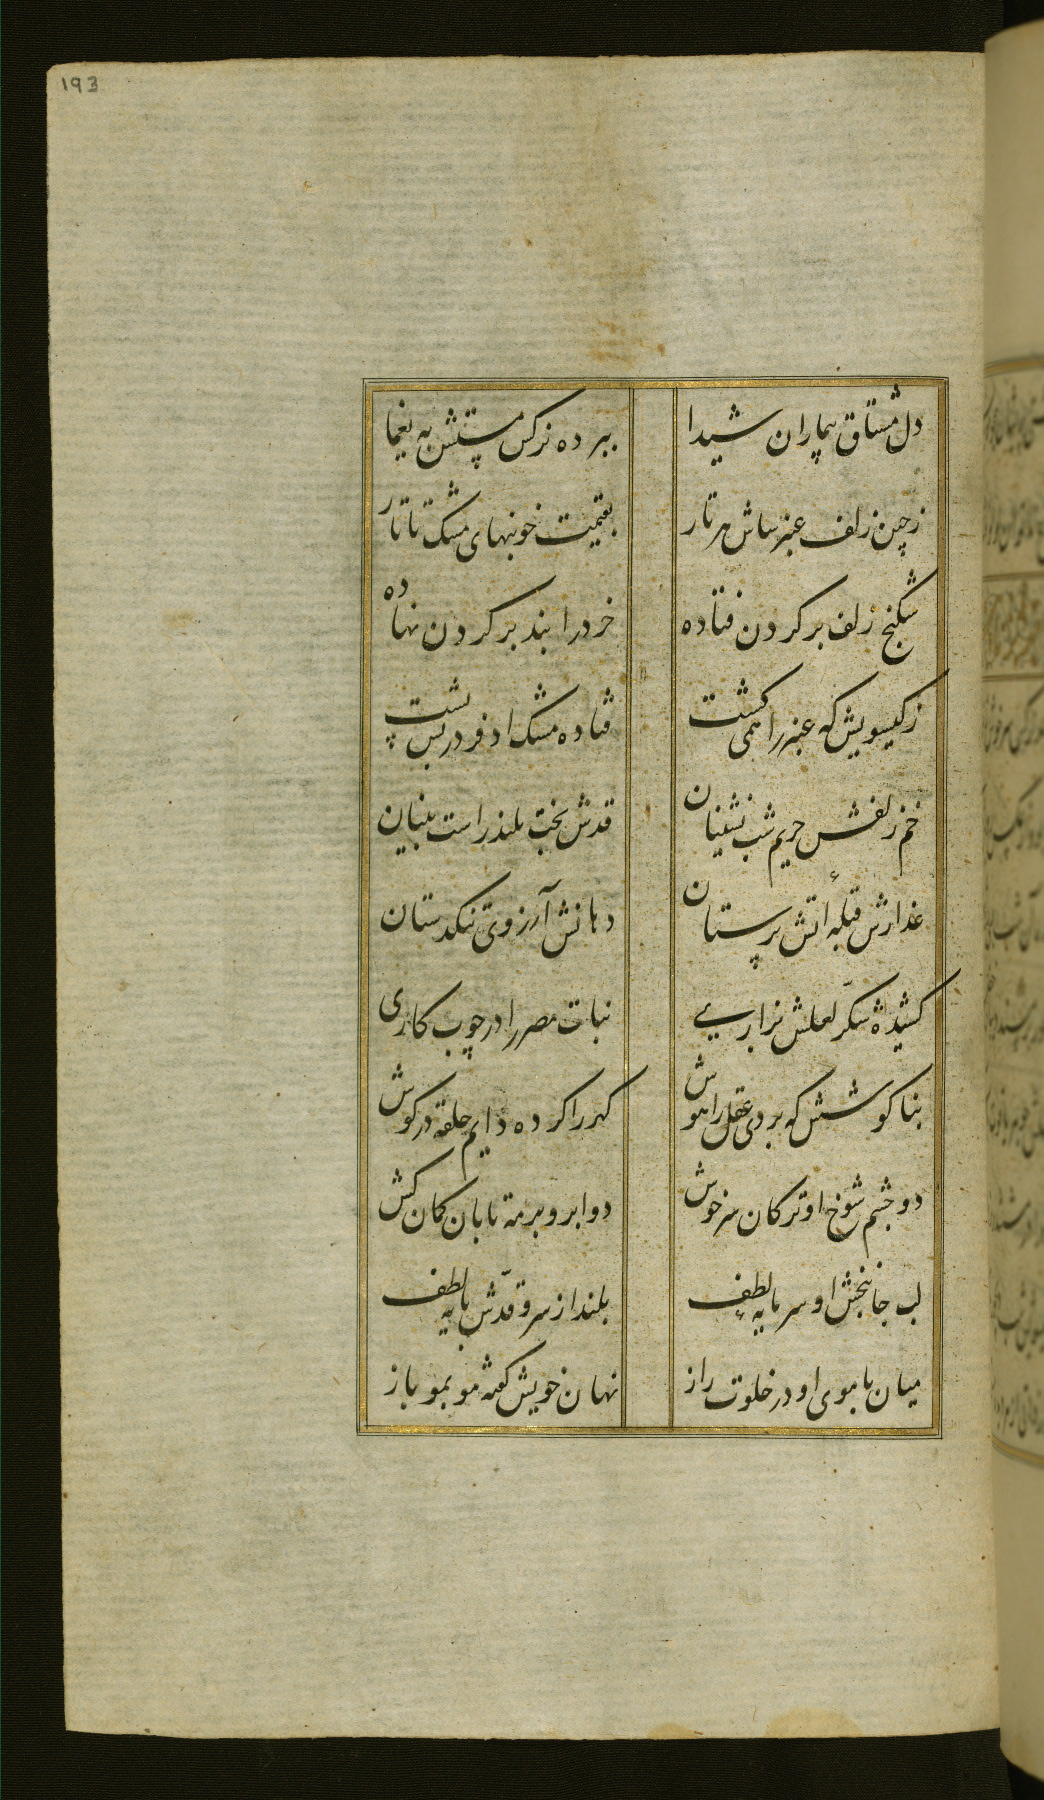 193
دل مشتاق بیماران شیدا
ببرده نرکس مستش به یغما
زچین زلف عنبر ساش هر تار
بقیمت خونبهای مشک تاتار
شکنج زلف بر کردن فتاده
خرد را بند بر کردن نهاده
زکیسویش که عنبر را همی کشت
فتاده مشک اذفر در پس پشت
خم زلفش حریم شب نشینان
قدش بخت بلند راست بینان
عذارش قبلهٔ اتش پرستان
دهانش آرزوی تنکدستان
کشیده شکّر لعلش بزاریی
نبات مصر را در چوب کاری
بناکوشش که بردی عقل را هوش
کهر را کرده دایم حلقه در کوش
دو چشم شوخ او ترکان سرخوش
دو ابرو بر مه تابان کمان کش
لب جانبخش او سرمایه لطف
بلند از سرو قدّش پایه لطف
میان با موی او در خلوت راز
نهان خویش کفته مو بمو باز